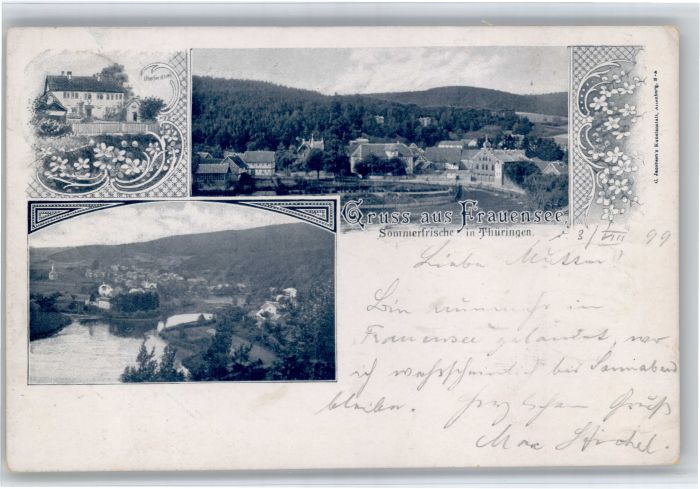 Oberförsterei
Gruss aus Frauensee,
Sommerfrische in Thüringen.
d. 3/VIII 99
Liebe Mutter!
Bin nunmehr in
Frauensee gelandet, wo
ich wahrscheinlich bis Sonnabend
bleibe. Herzlichen Gruß
Max